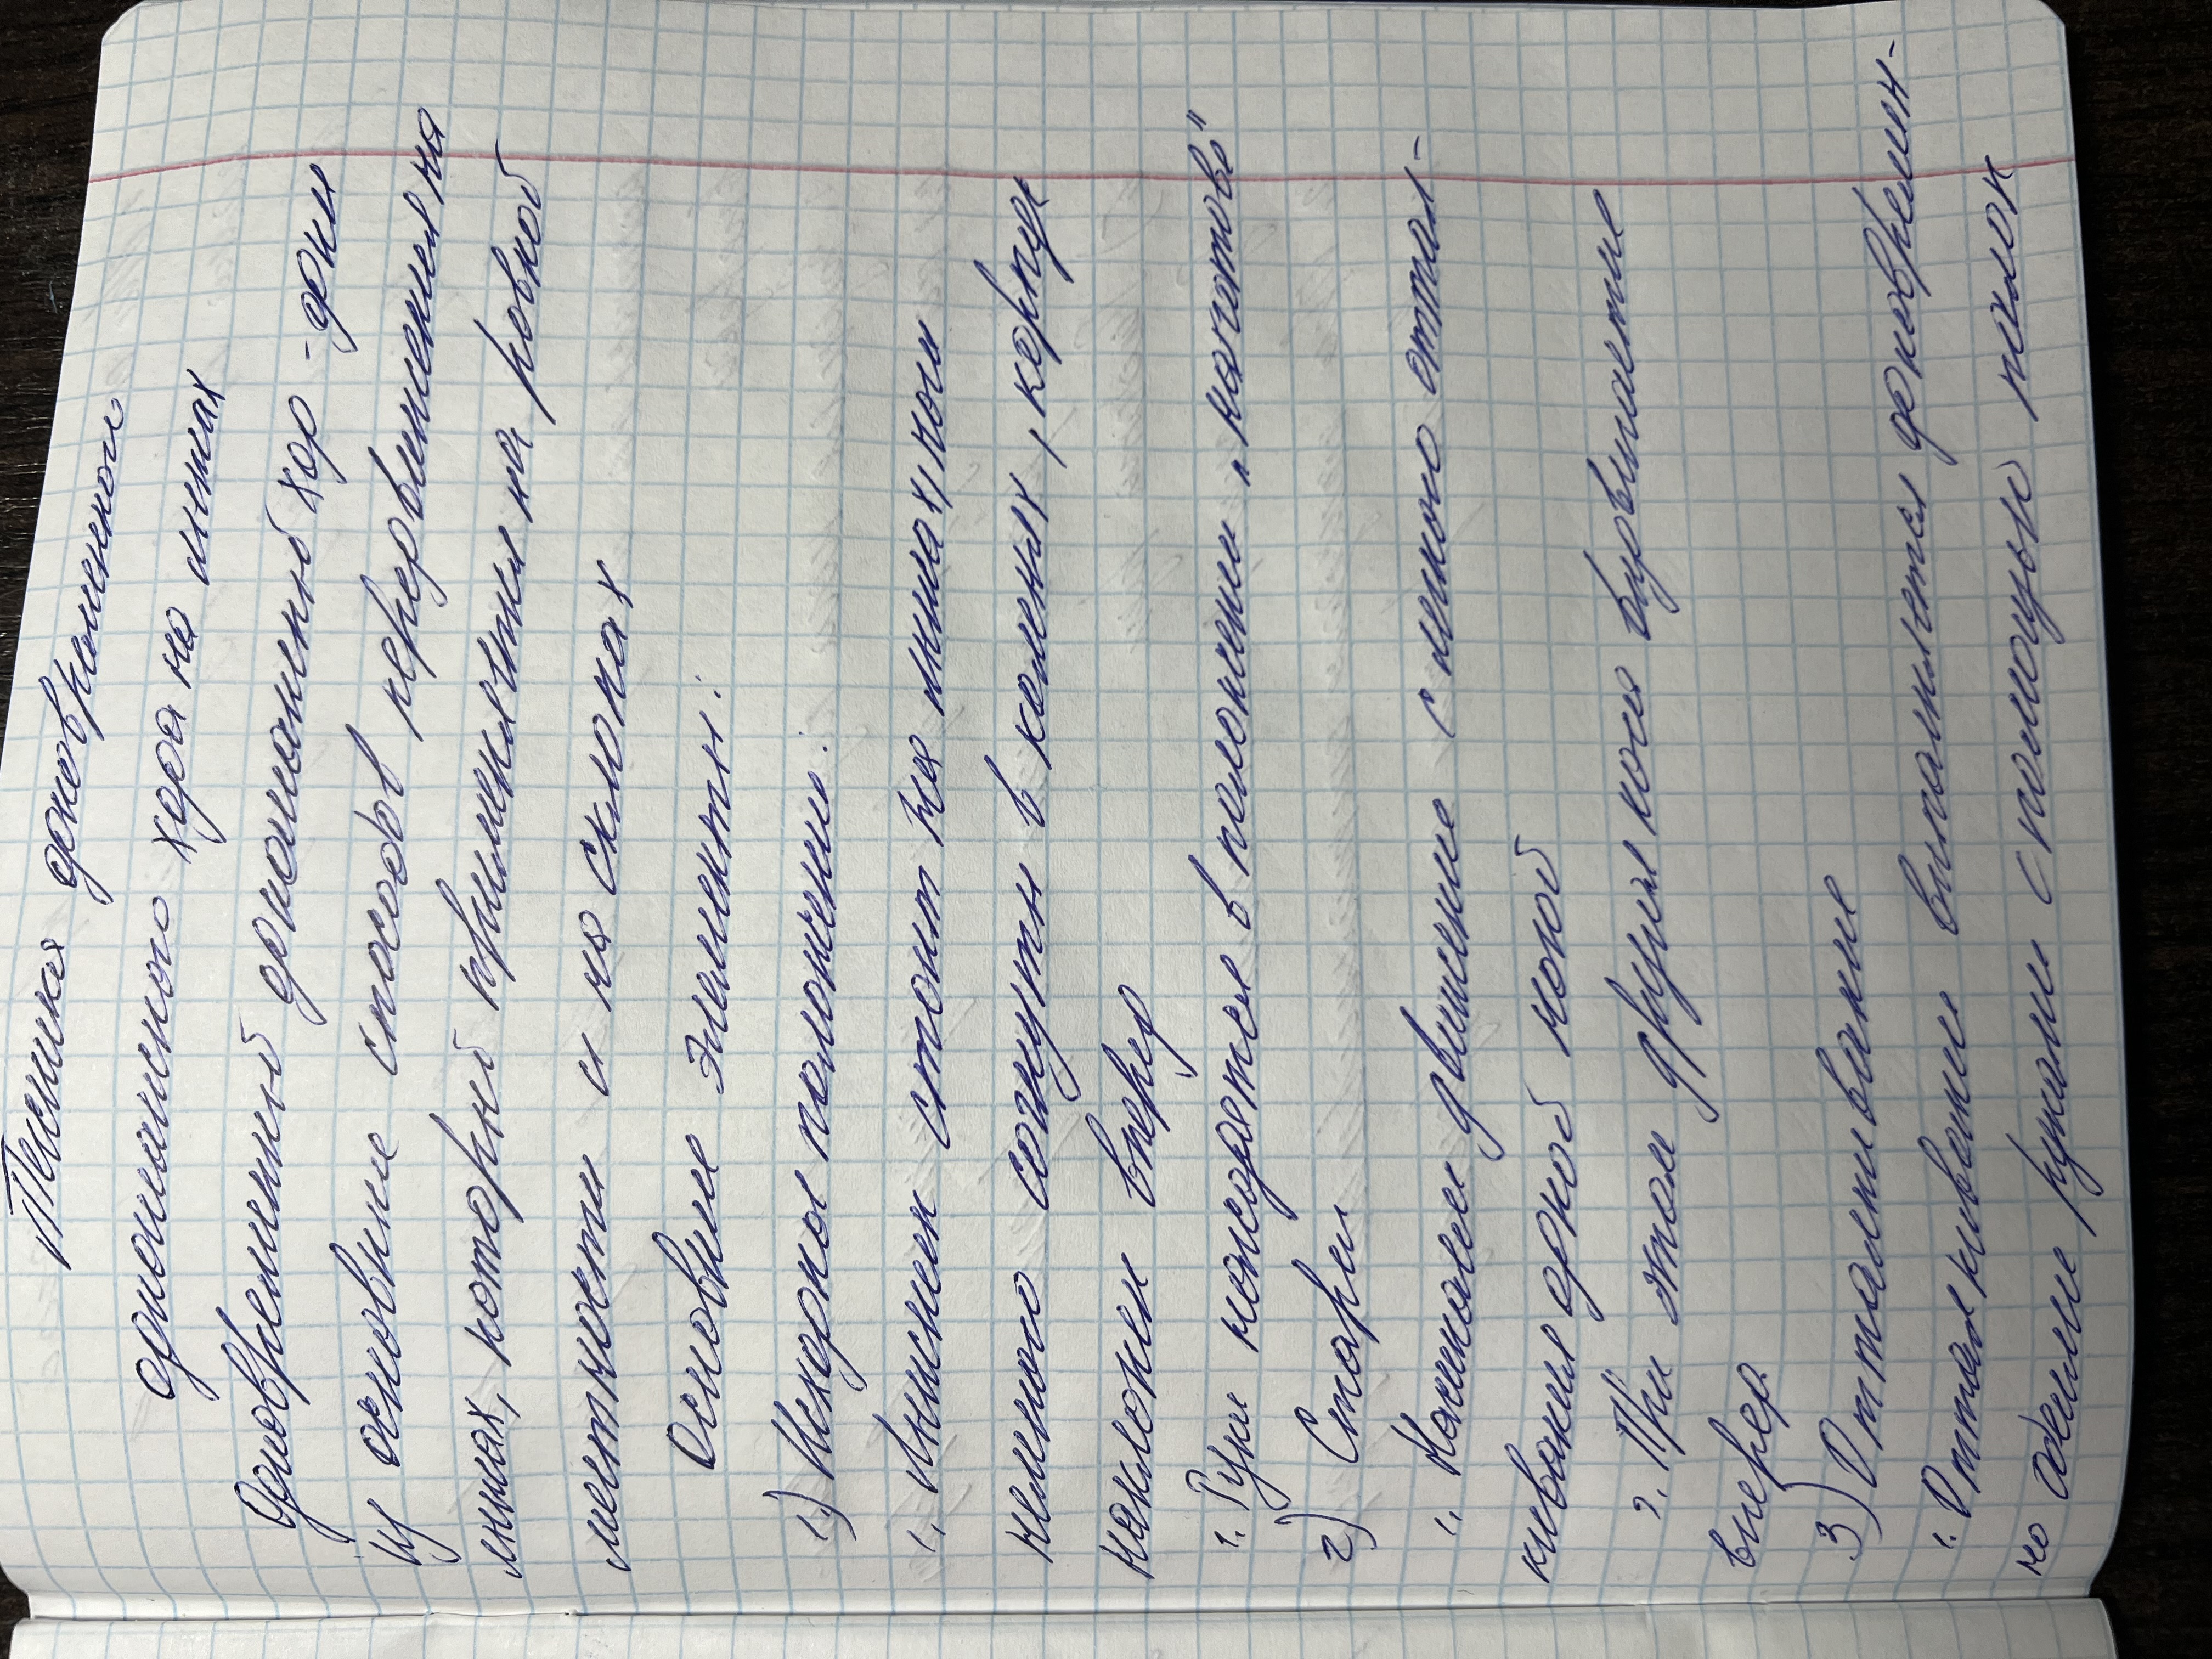 Техника одновременного
одношажного хода на лыжах
Одновременный одношажный ход - один
из основные способов передвижения на
лыжах, который применяется на ровной
местности и на склонах
Основные элементы:
1) Исходное положение:
1. Лыжник стоит на лыжах, ноги
немного согнуты в коленях, корпус
наклонен вперед
2. Руки находятся в положении „наготове"
2) Старт
1. Начинаем движение с легкого оттал-
кивания одной ногой
2. При этом другая нога выдвигается
вперед.
3) Отталкивание
1. Отталкивание выполняется одновремен-
но обеими руками с помощью палок